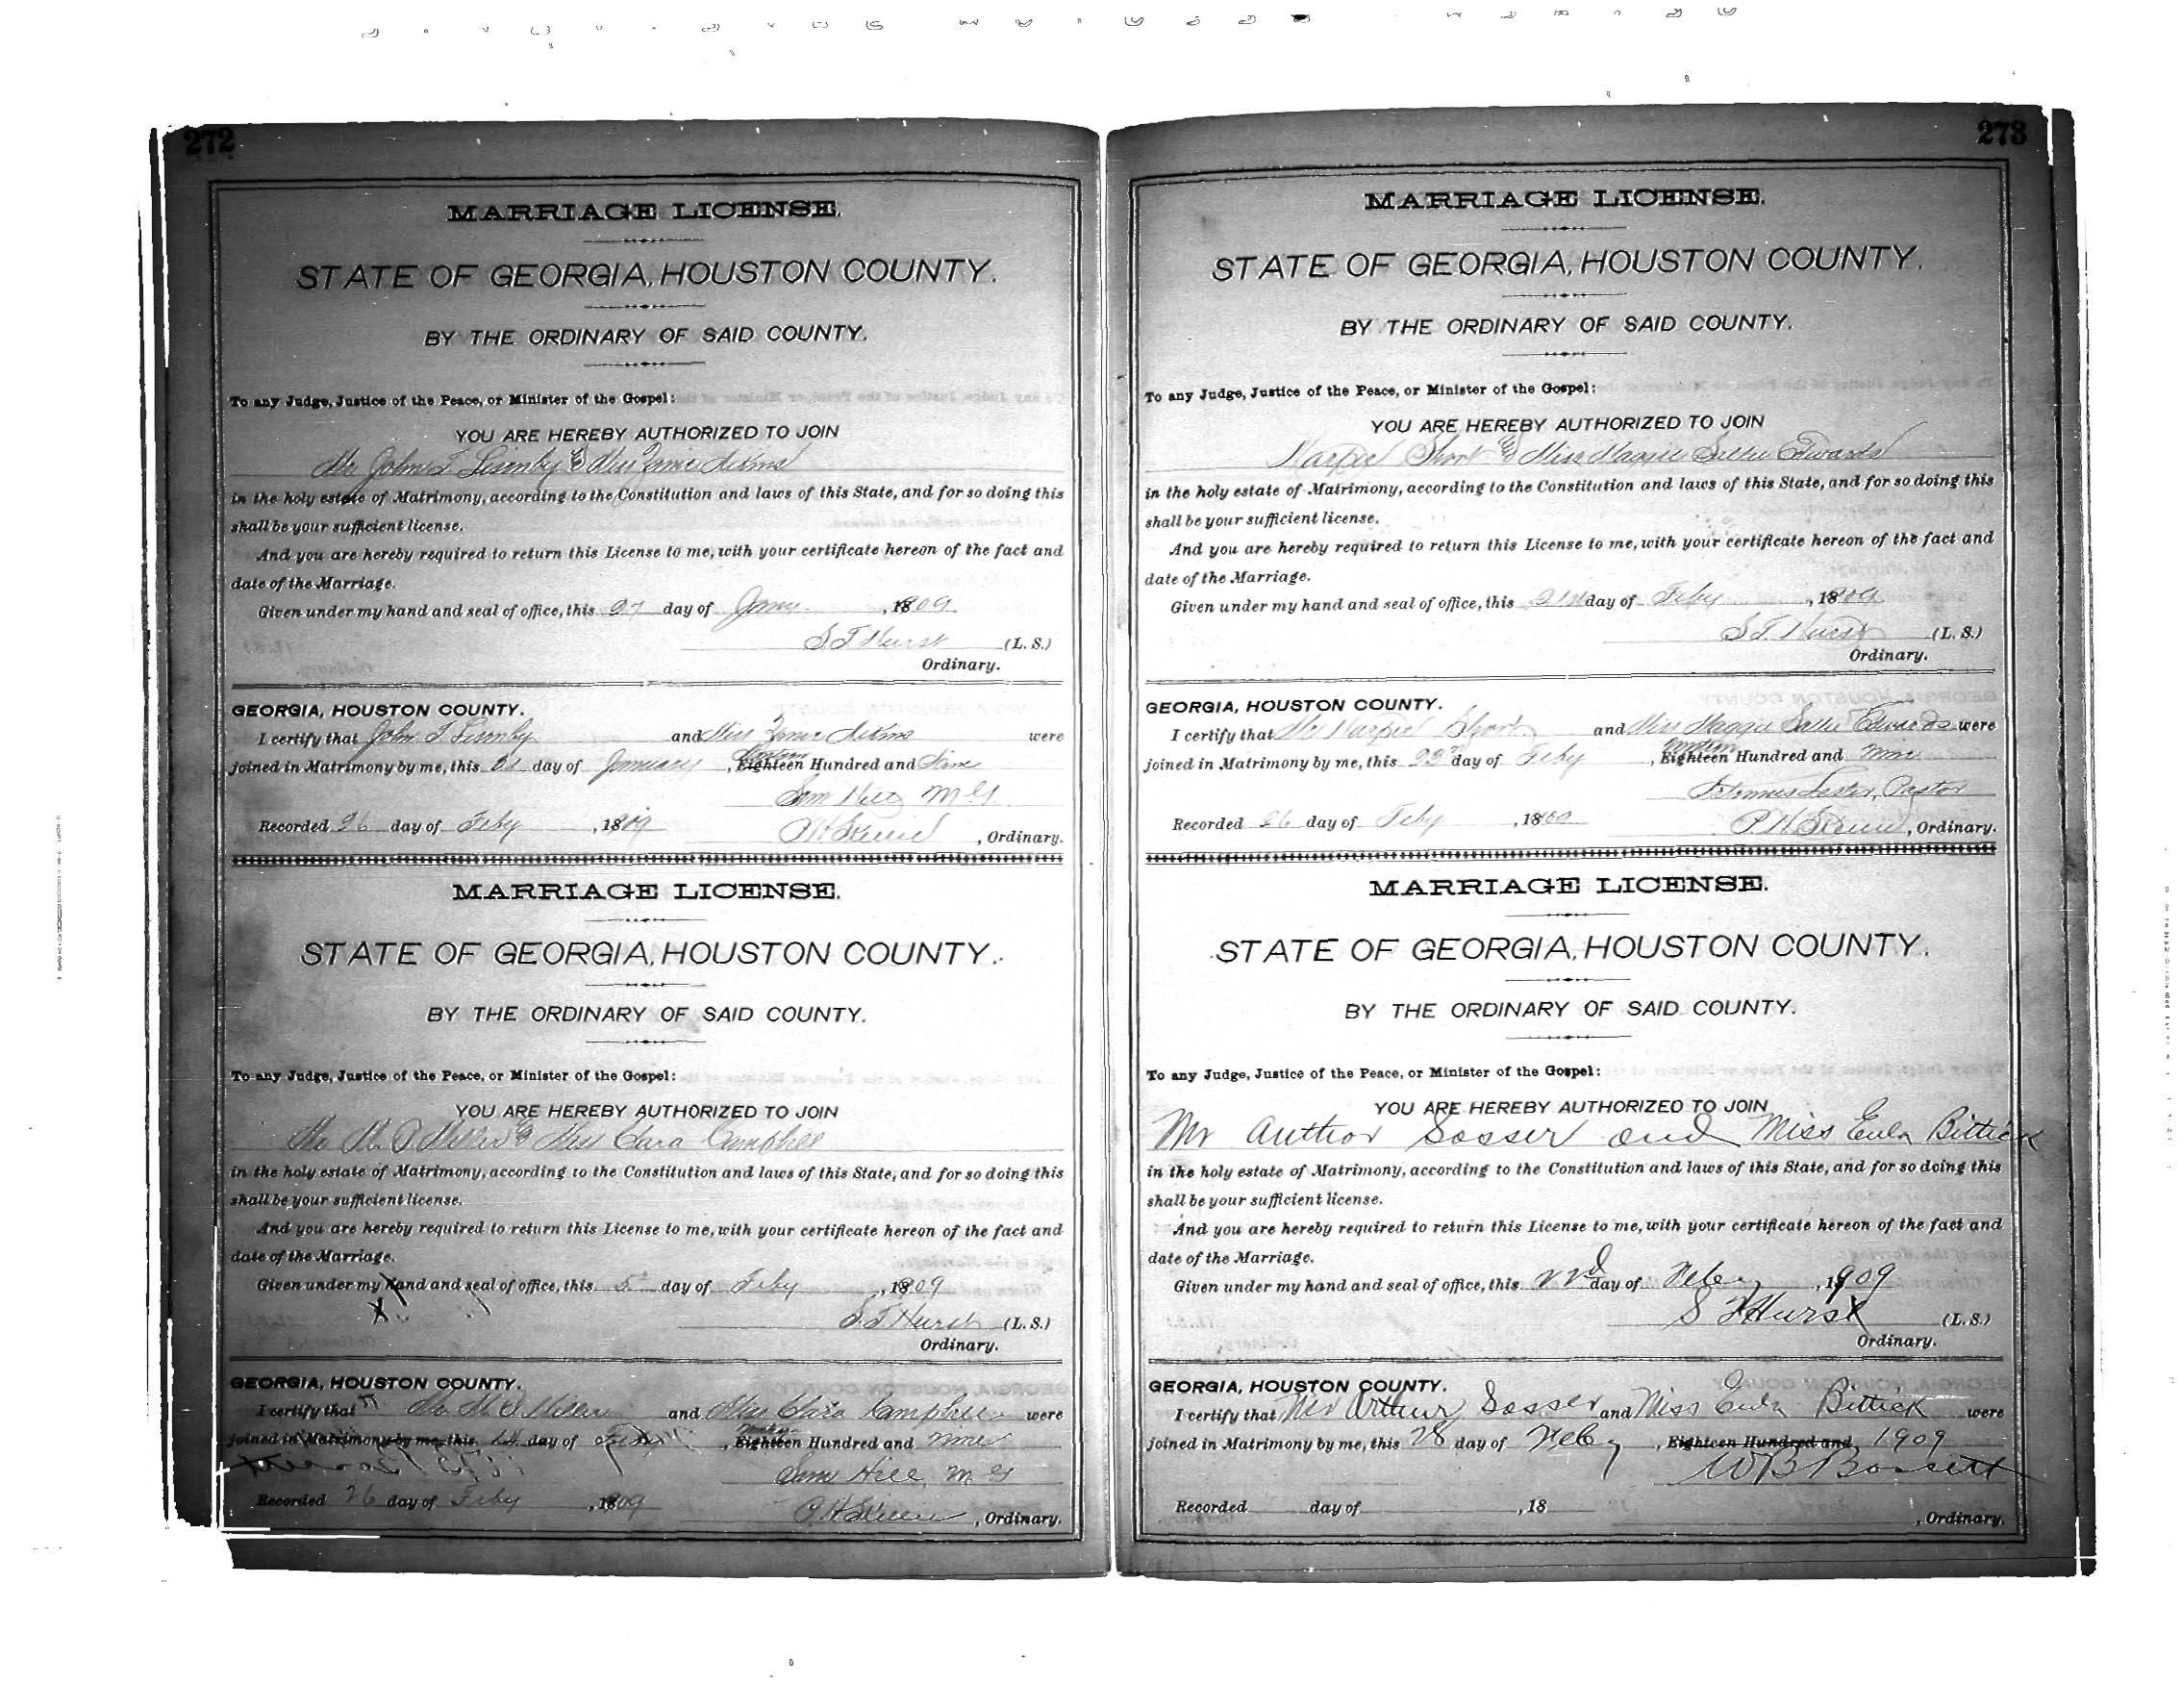 272
MARRIAGE LICENSE.
STATE OF GEORGIA, HOUSTON COUNTY.
BY THE ORDINARY OF SAID COUNTY.
To any Judge, Justice of the Peace, or Minister of the Gospel:
YOU ARE HEREBY AUTHORIZED TO JOIN
Mr John T. & Miss
in the holy estate of Matrimony, according to the Constitution and laws of this State, and for so doing this
shall be your sufficient license.
And you are hereby required to return this License to me, with your certificate hereon of the fact and
date of the Marriage.
Given under my hand and seal of office, this 27 day of Jany , 1909
S T Hurst (L. S.)
Ordinary.
GEORGIA, HOUSTON COUNTY.
I certify that John T and Miss were
joined in Matrimony by me, this day of January , Eighteen Hundred and Nine
Sam Hill M G
Recorded 26 day of Feby , 1809
, Ordinary.
MARRIAGE LICENSE.
STATE OF GEORGIA, HOUSTON COUNTY.
BY THE ORDINARY OF SAID COUNTY.
To any Judge, Justice of the Peace, or Minister of the Gospel:
YOU ARE HEREBY AUTHORIZED TO JOIN
& Miss Clara
in the holy estate of Matrimony, according to the Constitution and laws of this State, and for so doing this
shall be your sufficient license.
And you are hereby required to return this License to me, with your certificate hereon of the fact and
date of the Marriage.
Given under my hand and seal of office, this 5th day of Feby , 1909
S. T. Hurst (L. S.)
Ordinary.
GEORGIA, HOUSTON COUNTY.
I certify that and Miss Clara were
joined in Matrimony by me, this 14 day of , Eighteen Hundred and nine
Sam Hill, M G
Recorded 26 day of Feby , 1909
, Ordinary.
273
MARRIAGE LICENSE.
STATE OF GEORGIA, HOUSTON COUNTY.
BY THE ORDINARY OF SAID COUNTY.
To any Judge, Justice of the Peace, or Minister of the Gospel:
YOU ARE HEREBY AUTHORIZED TO JOIN
Harper Short & Miss Maggie Sallie Edwards
in the holy estate of Matrimony, according to the Constitution and laws of this State, and for so doing this
shall be your sufficient license.
And you are hereby required to return this License to me, with your certificate hereon of the fact and
date of the Marriage.
Given under my hand and seal of office, this day of Feby , 1909
S. T. Hurst (L. S.)
Ordinary.
GEORGIA, HOUSTON COUNTY.
I certify that Mr Harper Short and Miss Maggie Sallie Edwards were
joined in Matrimony by me, this day of Feby , Eighteen Hundred and nine
Lester, Pastor
Recorded 26 day of Feby , 1809
, Ordinary.
MARRIAGE LICENSE.
STATE OF GEORGIA, HOUSTON COUNTY.
BY THE ORDINARY OF SAID COUNTY.
To any Judge, Justice of the Peace, or Minister of the Gospel:
YOU ARE HEREBY AUTHORIZED TO JOIN
Mr Author Sasser and Miss Eula Bittick
in the holy estate of Matrimony, according to the Constitution and laws of this State, and for so doing this
shall be your sufficient license.
And you are hereby required to return this License to me, with your certificate hereon of the fact and
date of the Marriage.
Given under my hand and seal of office, this 22d day of Feby , 1909
S T Hurst (L. S.)
Ordinary.
GEORGIA, HOUSTON COUNTY.
I certify that Mr Arthur Sasser and Miss Eula Bittick were
joined in Matrimony by me, this 28 day of Feby , Eighteen Hundred and 1909
W B
Recorded day of , 18
, Ordinary.